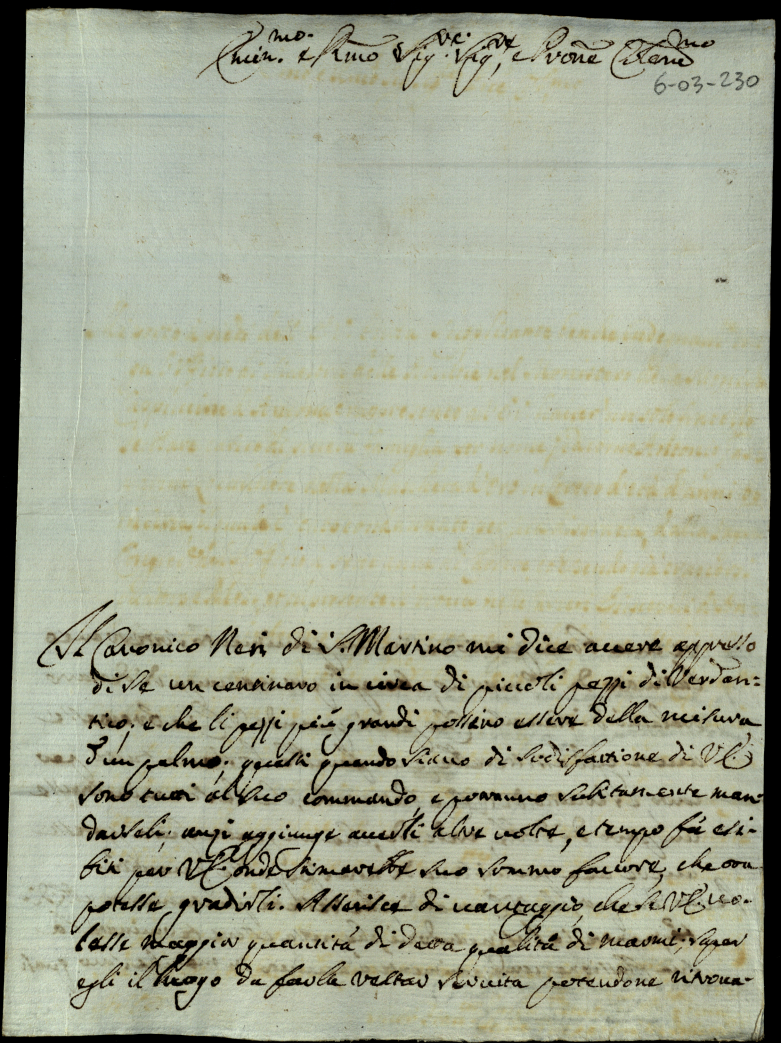 Emin.mo e Rmo Sig.re Sig.re, e Prone Colenmo
6-03-230
Il Canonico Neri di S. Martino mi dice avere appresso
di se un centinaro in circa di piccoli pezzi di Verdan=
tico; e che li pezzi più grandi possino essere della misura
d'un palmo. questi quando siano di sodisfattione di VE
sono tutti al suo commando e potranno subitamente man-
darseli; anzi aggiunge averli altre volte, e tempo fà esi-
biti per VE. onde stimarebbe suo sommo favore, che ora
potesse gradirli. Asserisce di vantaggio, che se VE vo-
lesse maggior quantità di detta qualità di marmi, saper
egli il luogo da farla restar servita potendone ritrova-